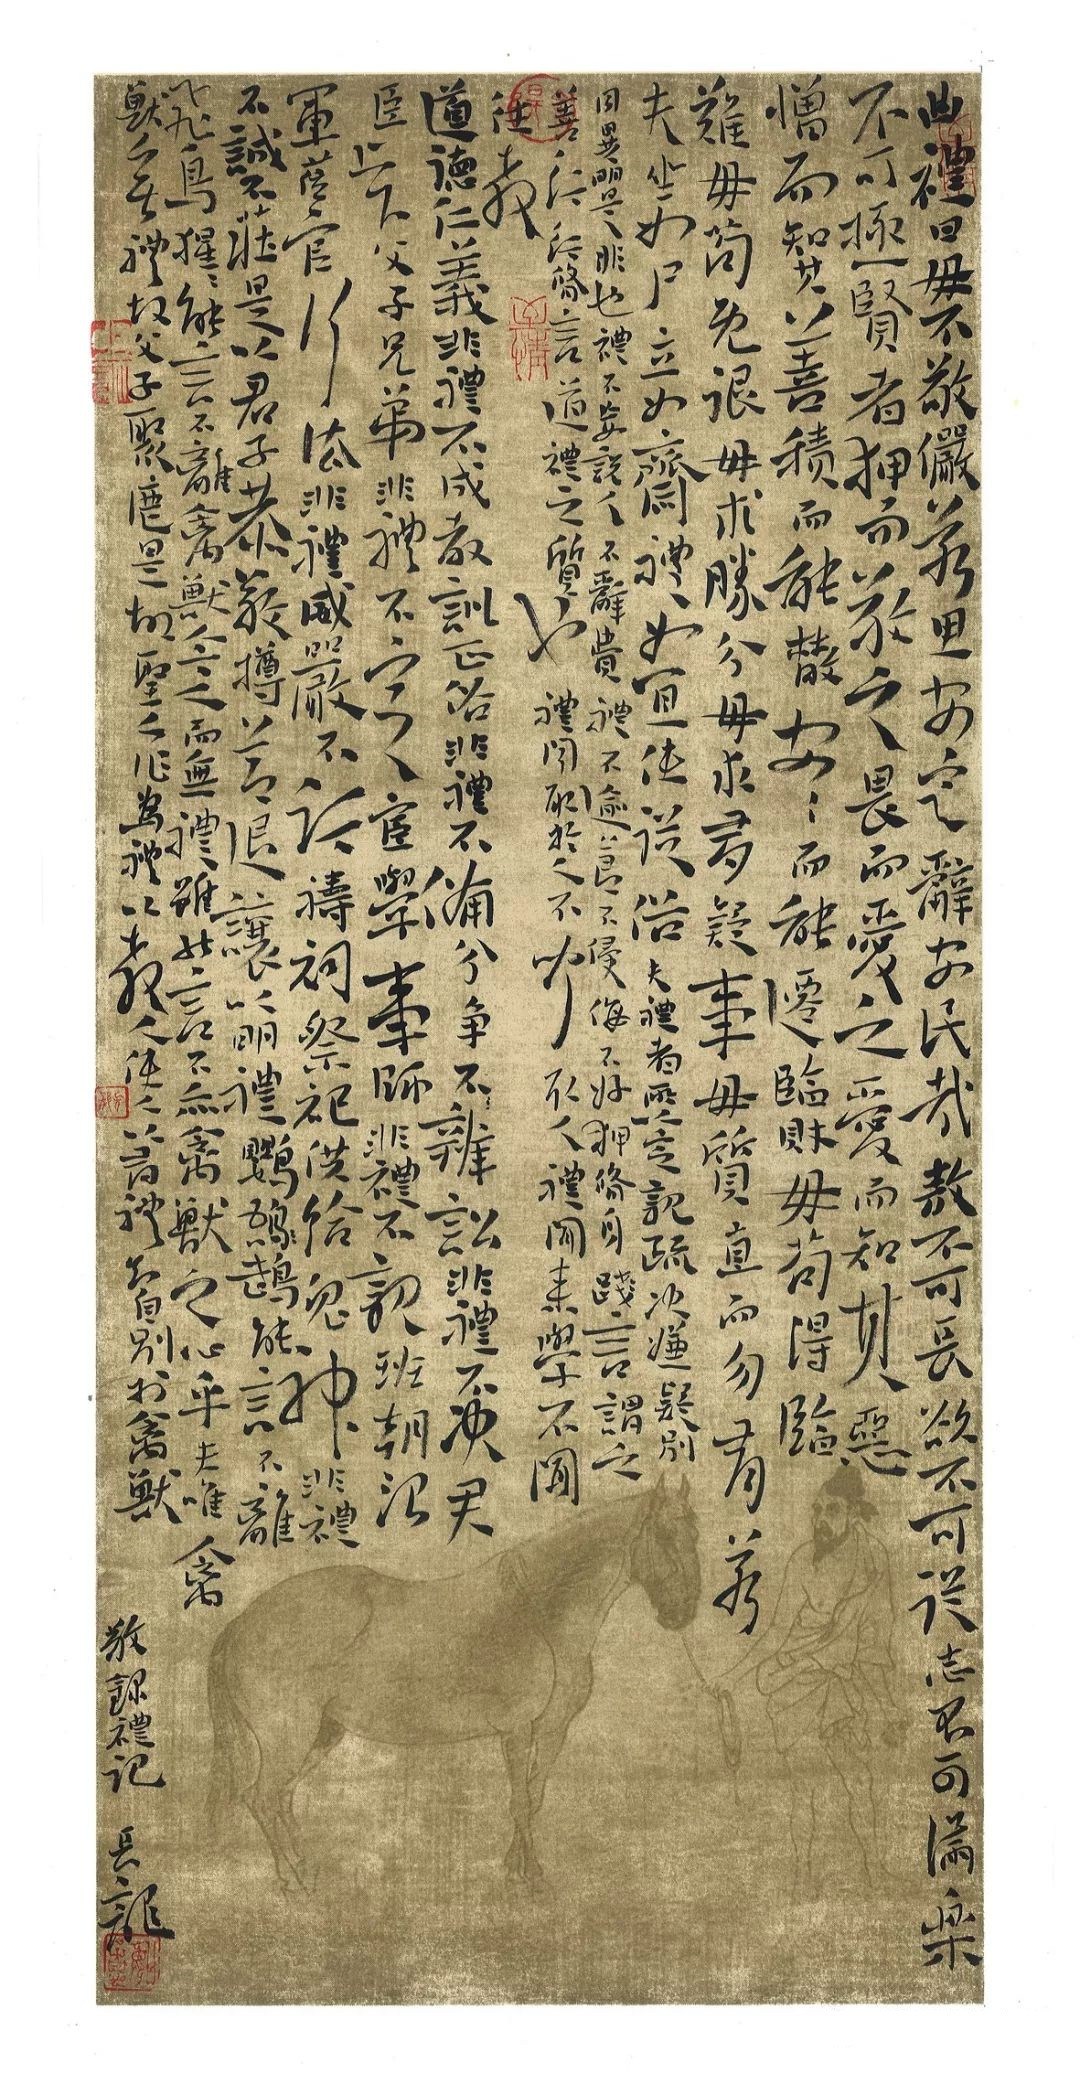 曲禮曰毋不敬儼若思安定辭安民哉敖不可長欲不可從志不可滿樂
不可極賢者狎而敬之畏而愛之愛而知其惡
憎而知其善積而能散安安而能遷臨財毋苟得臨
難毋苟免很毋求勝分毋求多疑事毋質直而勿有若
夫坐如尸立如齊禮從宜使從俗夫禮者所以定親疏決嫌疑別
同異明是非也禮不妄說人不辭費禮不逾節不侵侮不好狎脩身踐言謂之
善行行脩言道禮之質也禮聞取於人不聞取人禮聞來學不聞
往教
道德仁義非禮不成教訓正俗非禮不備分爭不辨訟非禮不決君
臣上下父子兄弟非禮不定宦學事師非禮不親班朝治
軍蒞官行法非禮威嚴不行禱祠祭祀供給鬼神非禮
不誠不莊是以君子恭敬撙節退讓以明禮鸚鵡能言不離
飛鳥猩猩能言不離禽獸今之而無禮雖能言不亦禽獸之心乎夫唯禽
獸無禮故父子聚麀是故聖人作為禮以教人使人以有禮知自別於禽獸
敬錄禮記